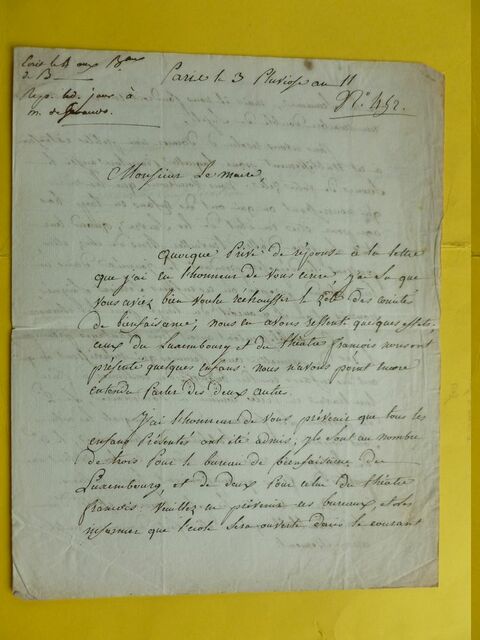 Ecrit le 4 aux B.aux
de B
Rep. led. jour à
m. de
Paris le 3 Pluviose an 11
N.° 452.
Monsieur Le maire,
Quoique Privé de réponse à la lettre
que j'ai eu l'honneur de vous écrire, j'ai su que
vous aviez bien voulu réchauffer le zèle des comités
de bienfaisance; nous en avons ressenti quelques effets,
ceux du Luxembourg et du théatre francois nous ont
présenté quelques enfans. nous n'avons point encore
entendu parler des deux autres.
J'ai l'honneur de vous prévenir que tous les
enfans présentés ont été admis, ils sont au nombre
de trois pour le bureau de bienfaisance du
Luxembourg, et de deux pour celui du théatre
francois. veuillez en prévenir ces bureaux, et les
informer que l'école sera ouverte dans le courant